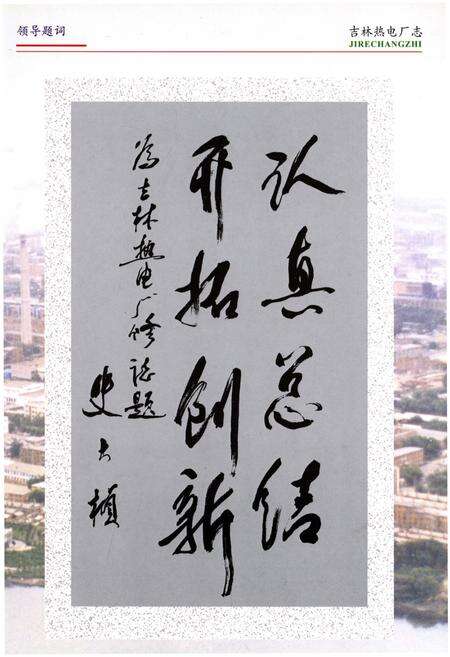 领导题词
吉林热电厂志
JIRECHANGZHI
认真总结
开拓创新
为吉林热电厂修誌题
史大桢